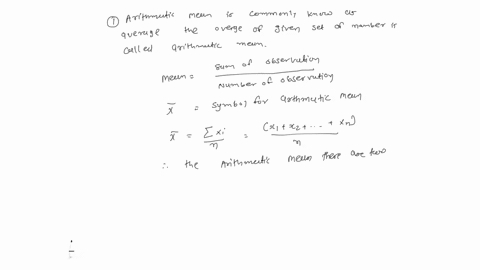 ① Arithmetic mean is commonly know as
average the overge of given set of number is
called arithmetic mean.
mean = Sum of observation / Number of observation
x̄ = Symbol for arithmetic mean
x̄ = ∑xi / n = (x1 + x2 + ... + xn) / n
∴ the Arithmetic mean there are two